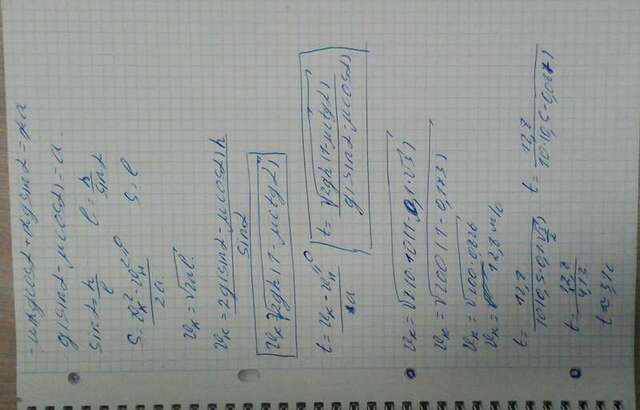 -μmgcosα+mgsinα=ma
g(sinα-μcosα)=a
sinα=h/l l=h/sinα
S=(vк²-vн²)/2a S=l
vк=√2al
vк=2g(sinα-μcosα)h/sinα
vк=√2gh(1-μctgα)
t=(vк-vн)/a t=√2gh(1-μctgα)/g(sinα-μcosα)
vк=√2·10·10(1-0,1·√3)
vк=√200(1-0,1√3)
vк=√200·0,826
vк= 12,8 м/с
t=12,8/10(0,5-0,1·√3/2) t=12,8/10(0,5-0,087)
t=12,8/4,12
t≈3,1c